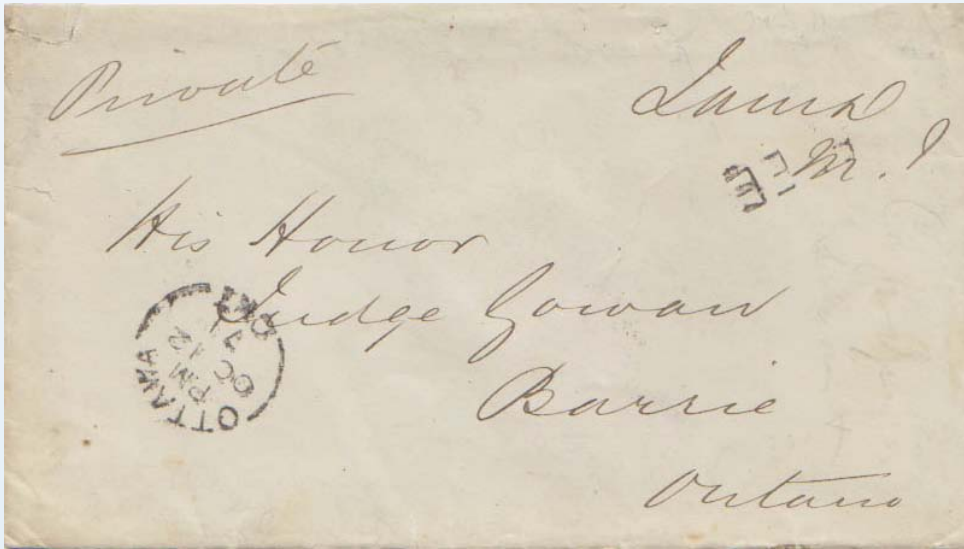 Private
Laird
M. I
His Honor
Judge Gowan
Barrie
Ontario
OTTAWA
PM
OC 12
ONT